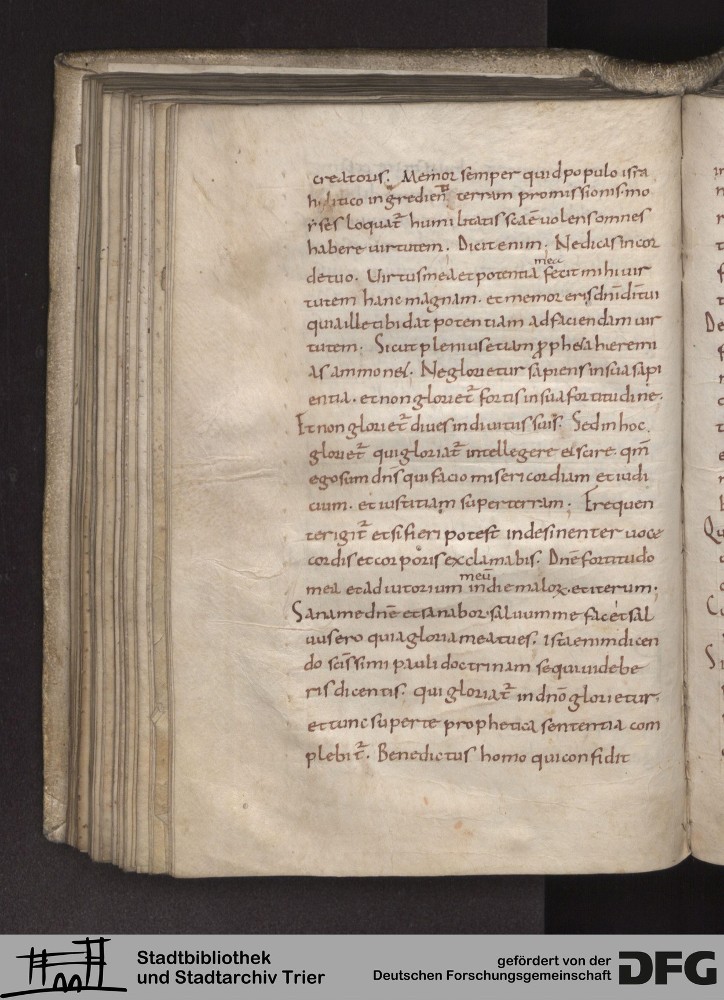 creatoris. Memor semper quid populo isra
helitico ingredienti terram promissionis mo
ises loquat̄ humilitatis scāe uolens omnes
habere uirtutem. Dicit enim; Ne dicas in cor
de tuo. Uirtus mea et potentia mea fecit mihi uir
tutem hanc magnam. et memor eris dn̄i dī tui
quia ille tibi dat potentiam ad faciendam uir
tutem. Sicut plenius etiam ꝓpheta hieremi
as ammonet. Ne glorietur sapiens in sua sapi
entia. et non gloriet̄ fortis in sua fortitudine.
Et non gloriet̄ diues in diuitiis suis. Sed in hoc
gloriet̄ qui gloriat̄ intellegere et scire. qm̄
ego sum dn̄s qui facio misericordiam et iudi
cium. et iustitiam super terram; Frequen
ter igit̄ et si fieri potest indesinenter uoce
cordis et corporis exclamabis. Dn̄e fortitudo
mea et adiutorium meū in die maloꝝ. et iterum;
Sana me dn̄e et sanabor. saluum me fac et sal
uus ero quia gloria mea tu es. Ista enim dicen
do scīssimi pauli doctrinam sequi uidebe
ris dicentis. qui gloriat̄ in dn̄o glorietur.
et tunc super te prophetica sententia com
plebit̄. Benedictus homo qui confidit
De
Qu
Stadtbibliothek
und Stadtarchiv Trier
gefördert von der
Deutschen Forschungsgemeinschaft
DFG